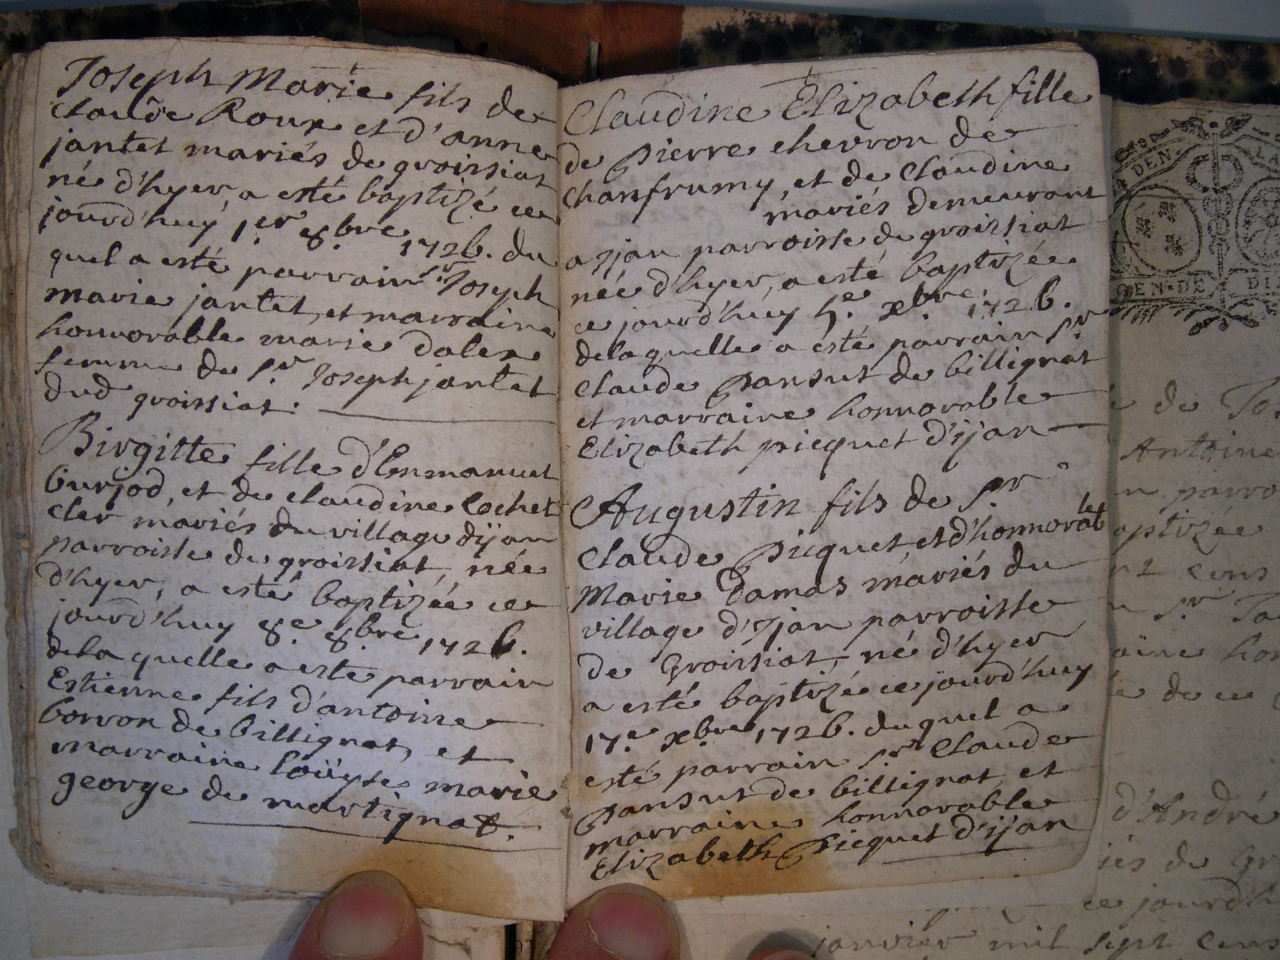 Joseph Marie fils de
Claude Roux et d'anne
jantet mariés de groissiat
né d'hyer, a esté baptizé ce
jourd'huy 1er 8bre 1726. du
quel a esté parrain Sr Joseph
marie jantet, et marraine
honnorable marie dalex
femme de Sr Joseph jantet
dud groissiat.
Birgitte fille d'Emmanuel
burjod, et de claudine cochet
mariés du village dijan
parroisse de groissiat, née
d'hyer, a esté baptizée ce
jourd'huy 8e 8bre 1726.
de la quelle a este parrain
Estienne fils d'antoine
borron de billignat, et
marraine loüyse marie
george de martignat.
Claudine Elizabeth fille
de pierre chevron de
Chanfrumy, et de Claudine
mariés demeurant
a ijan parroisse de groissiat
née d'hyer, a esté baptizée
ce jourd'huy 5e xbre 1726.
de laquelle a esté parrain Sr
Claude pansut de billignat
et marraine honnorable
Elizabeth picquet d'ijan
Augustin fils de Sr
Claude picquet et d'honnorable
Marie Damas mariés du
village d'ijan parroisse
de Groissiat, né d'hyer
a esté baptizé ce jourd'huy
17e xbre 1726. duquel a
esté parrain Sr Claude
pansut de billignat et
marraine honnorable
Elizabeth picquet d'ijan
DEN
GEN·DE DI
de
Antoine
parro
aptizée
cens
Sr
aine hon
de ce
d'André
de Gr
ce jourd'h
janvier mil sept cens